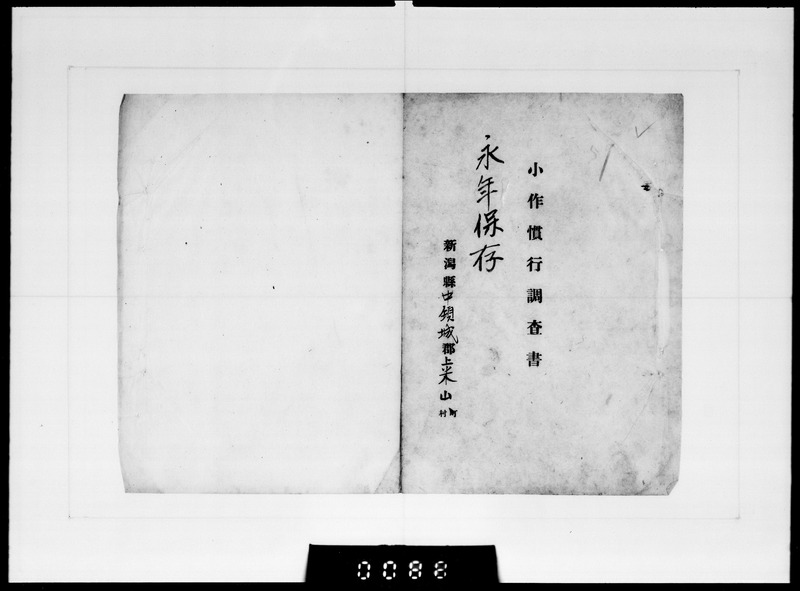 小作慣行調査書
永年保存
新潟縣中頸城郡上米山村
町
0088